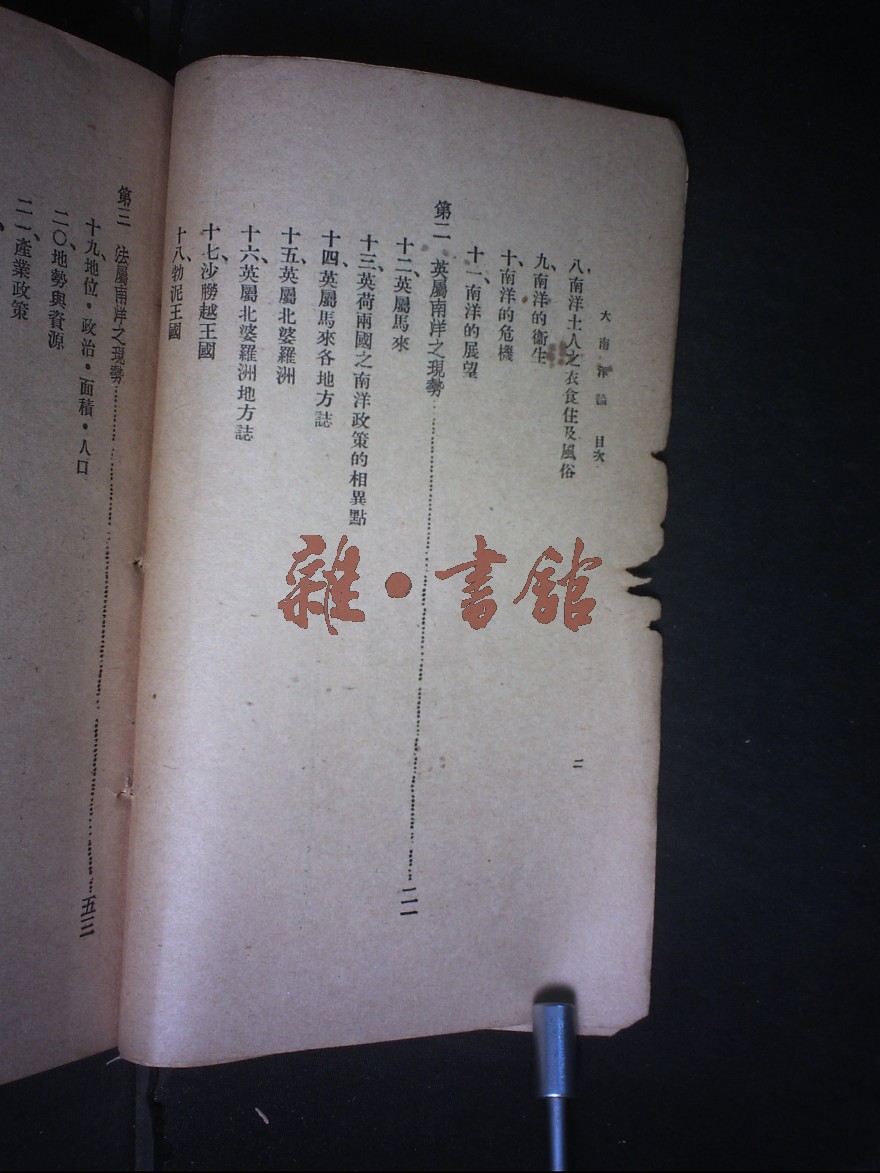 大南洋論 目次 二
八、南洋土人之衣食住及風俗
九、南洋的衞生
十、南洋的危機
十一、南洋的展望
第二 英屬南洋之現勢……………………二一
十二、英屬馬來
十三、英荷兩國之南洋政策的相異點
十四、英屬馬來各地方誌
十五、英屬北婆羅洲
十六、英屬北婆羅洲地方誌
十七、沙勝越王國
十八、勃泥王國
第三 法屬南洋之現勢……………………五三
十九、地位・政治・面積・人口
二〇、地勢與資源
二一、產業政策
雜・書館